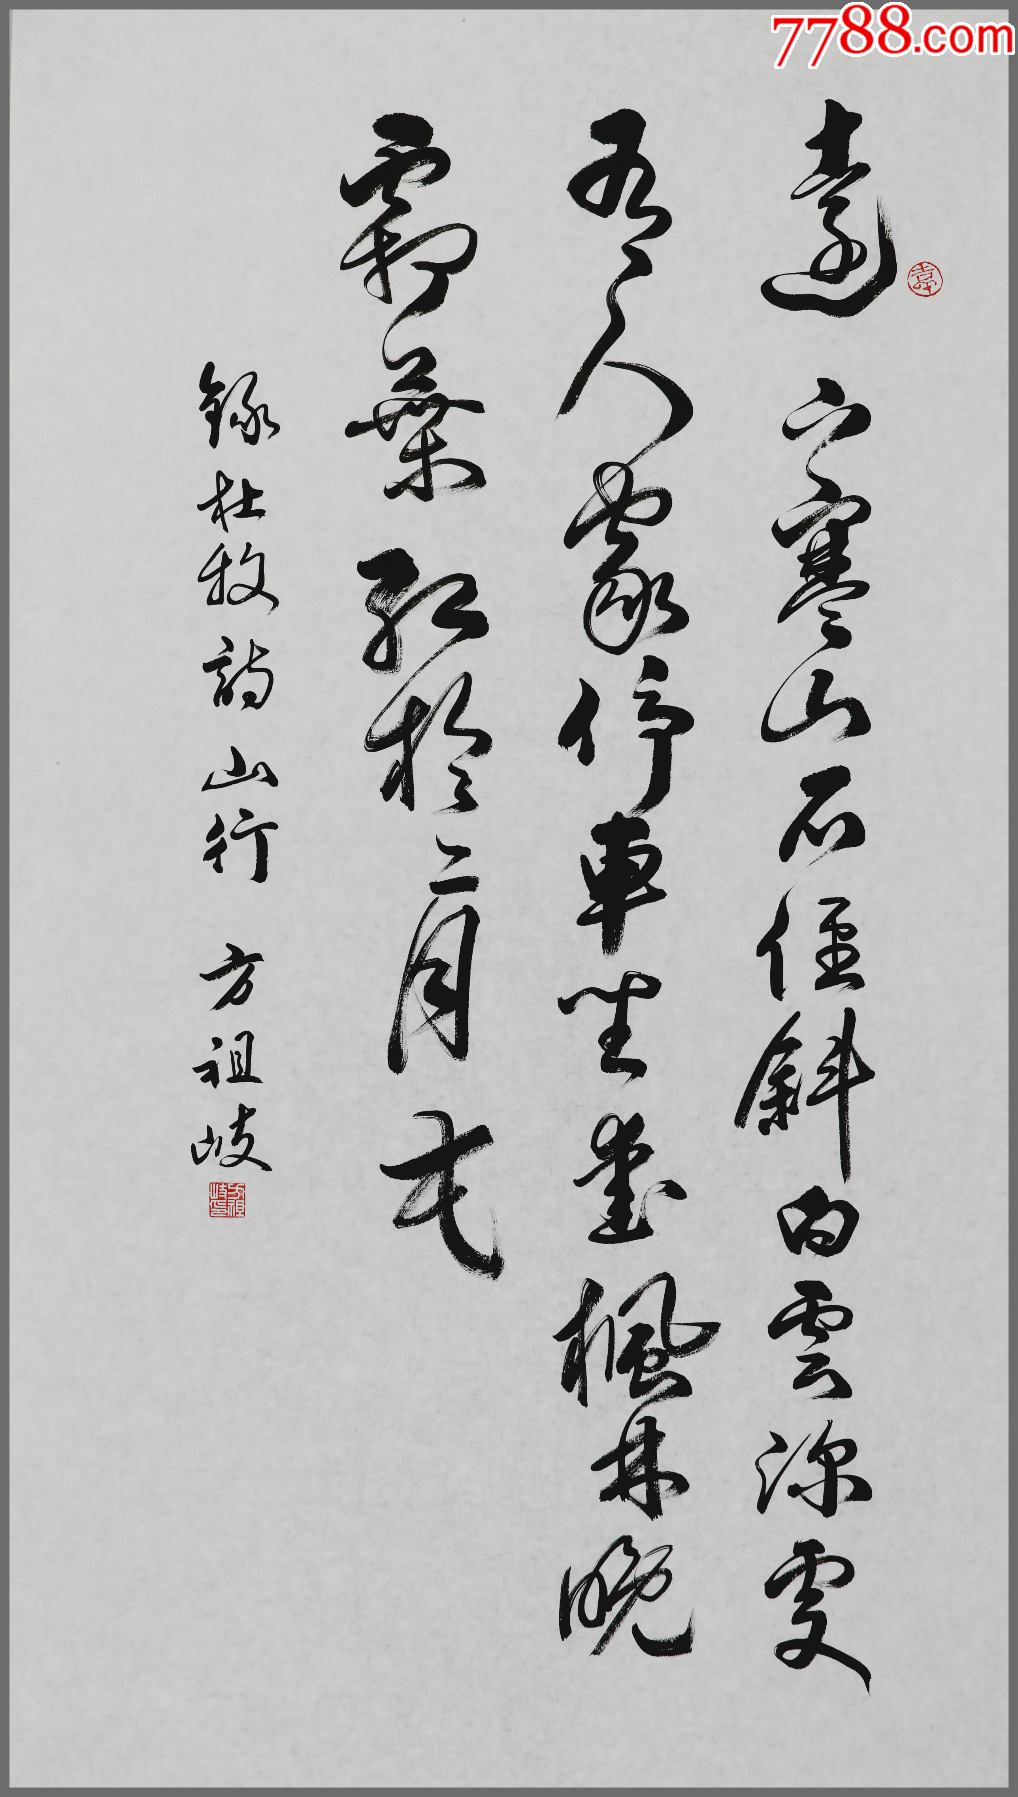 7788.com
遠上寒山石徑斜白雲深處
有人家停車坐愛楓林晚
霜葉紅於二月花
錄杜牧詩山行 方祖岐
方祖岐印